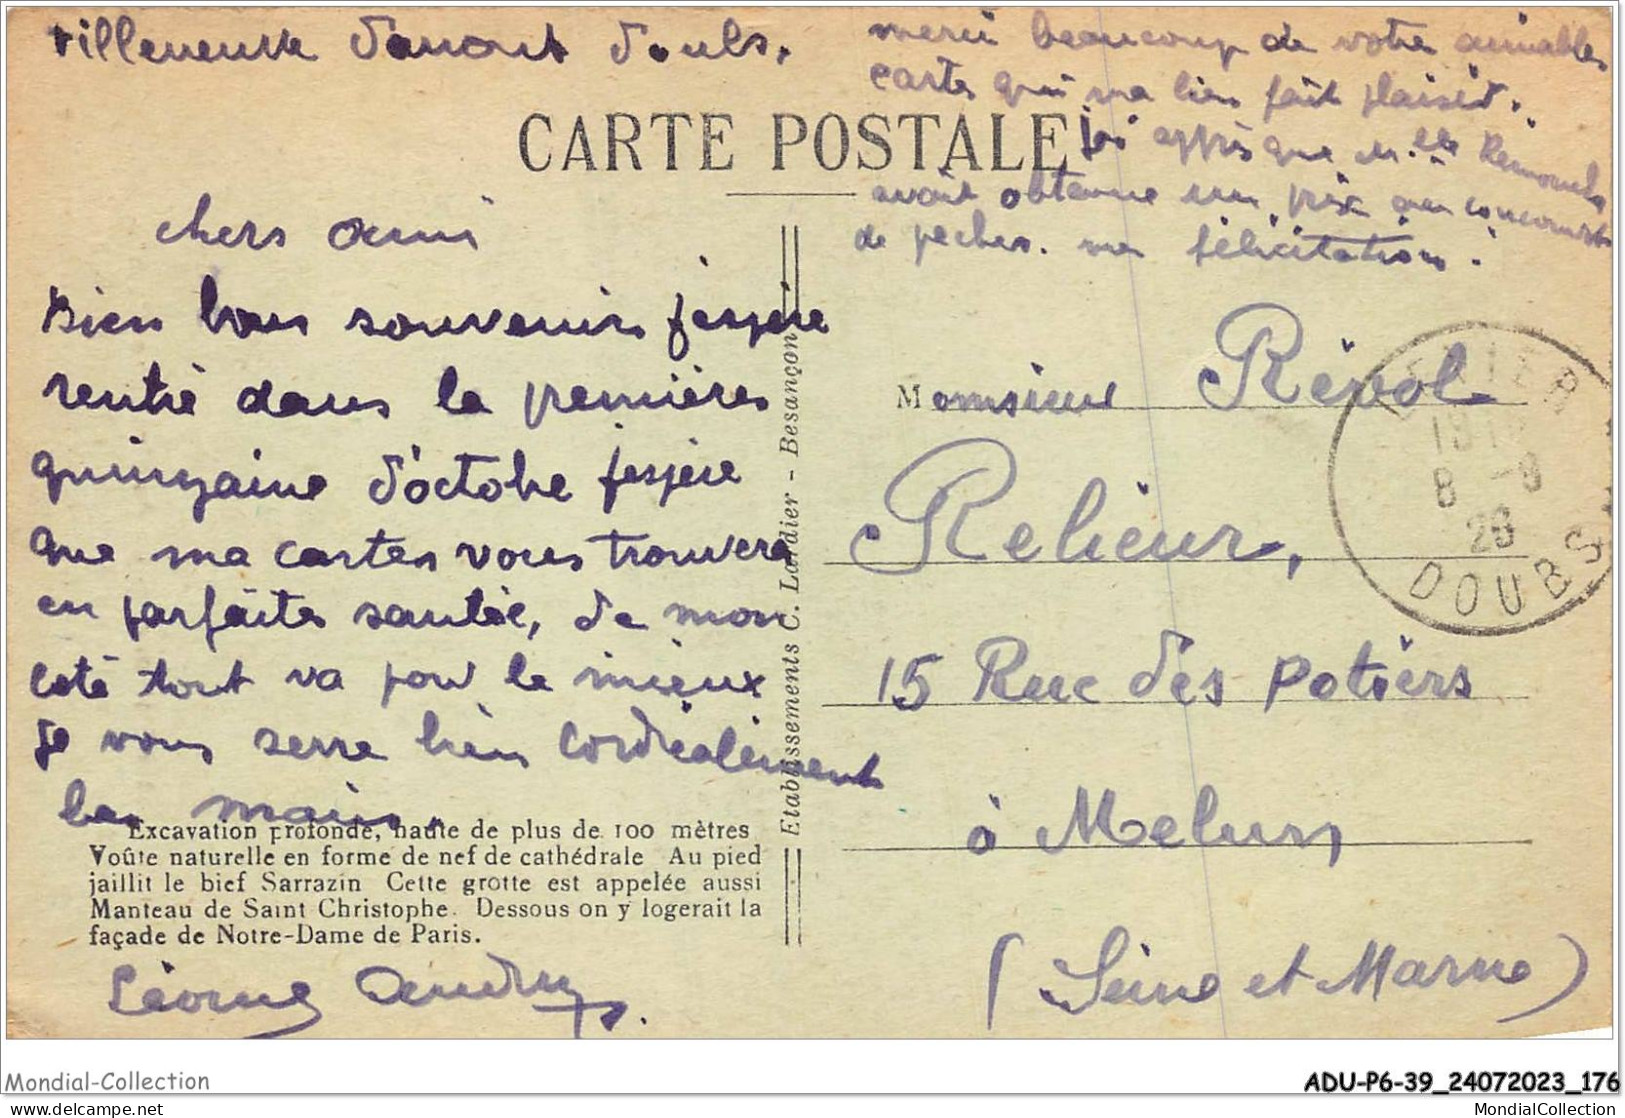 villeneuve Damont Doubs.
merci beaucoup de votre aimables
cartes qui ma bien fait plaisir.
CARTE POSTALE
jai appris que M.lle Renouls
avait obtenue un prix au concourst
de pecher. mes félicitations.
chers ami
Bien bons souvenirs jespère
rentré dans la premières
quinzaine d'octobre jespère
que ma cartes vous trouvera
en parfaite santée, de mon
coté tout va pour le mieux
Je vous serre bien cordialement
les mains.
Excavation profonde, haute de plus de 100 mètres
Voûte naturelle en forme de nef de cathédrale Au pied
jaillit le bief Sarrazin Cette grotte est appelée aussi
Manteau de Saint Christophe. Dessous on y logerait la
façade de Notre-Dame de Paris.
Léonce Audry.
Etablissements C. Lardier - Besançon
Monsieur Révol
Relieur,
15 Rue des Potiers
à Melun
(Seine et Marne)
LEVIER
8 -9
26
DOUBS
Mondial-Collection
ADU-P6-39_24072023_176
delcampe.net
MondialCollection